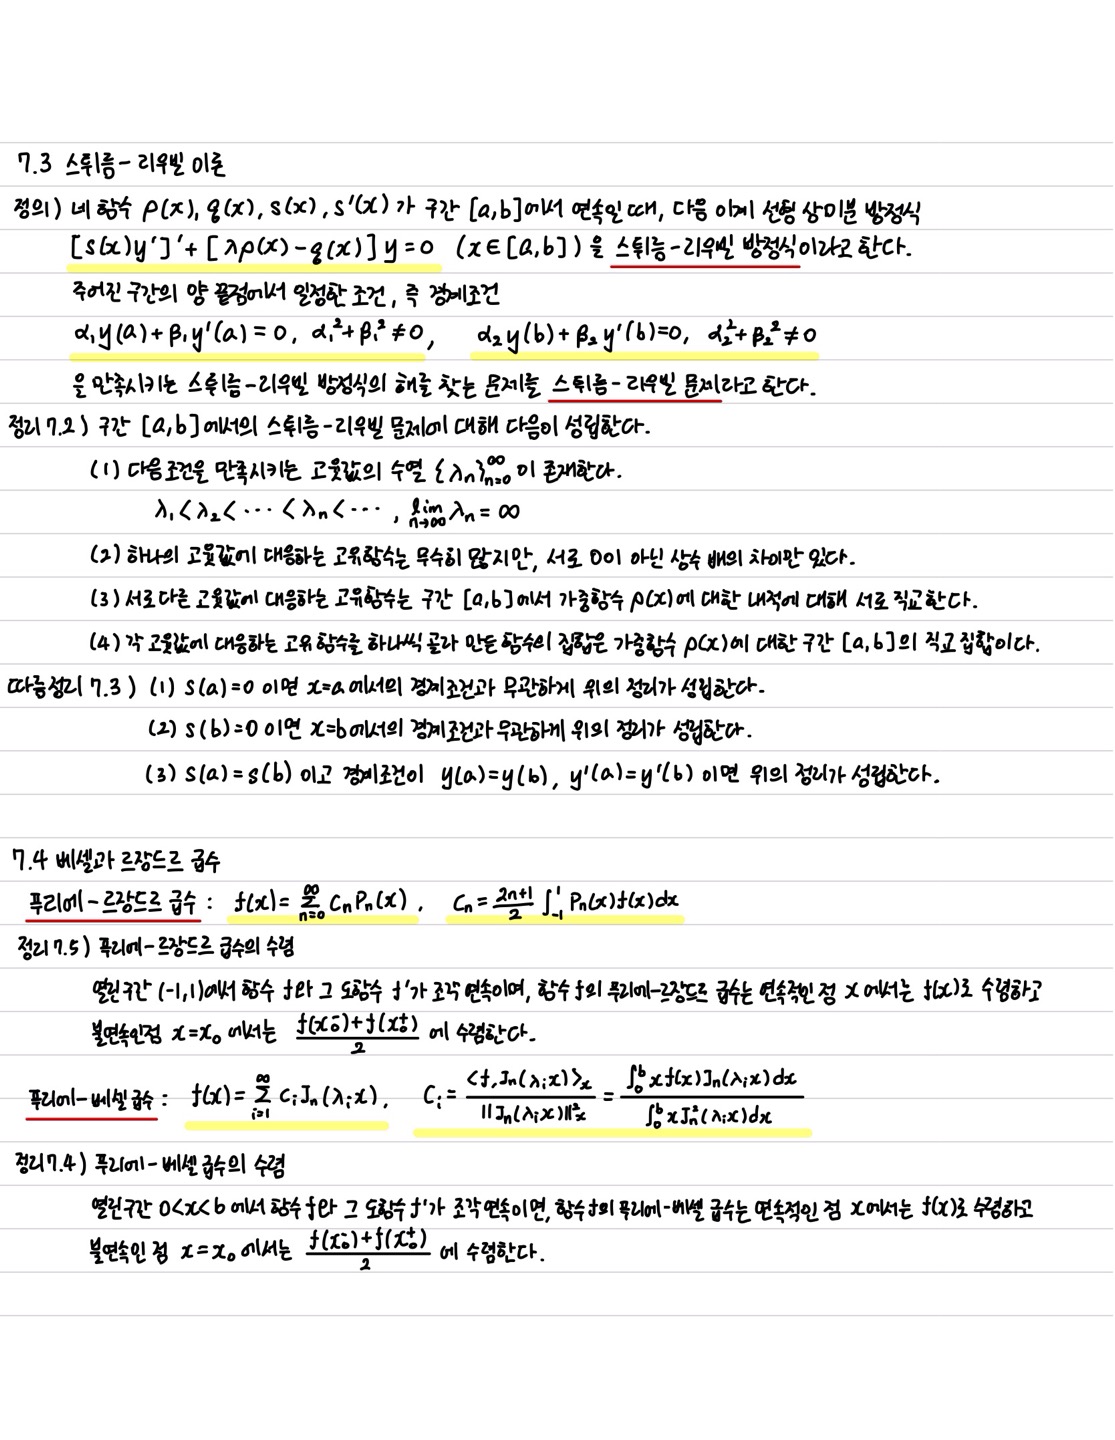 7.3 스튀름-리우빌 이론
정의) 네 함수 p(x), q(x), s(x), s'(x)가 구간 [a,b]에서 연속일 때, 다음 이계 선형 상미분 방정식
[s(x)y']' + [λp(x)-q(x)]y=0 (x∈[a,b])을 스튀름-리우빌 방정식이라고 한다.
주어진 구간의 양 끝점에서 일정한 조건, 즉 경계조건
α₁y(a)+β₁y'(a)=0, α₁²+β₁²≠0, α₂y(b)+β₂y'(b)=0, α₂²+β₂²≠0
을 만족시키는 스튀름-리우빌 방정식의 해를 찾는 문제를 스튀름-리우빌 문제라고 한다.
정리 7.2) 구간 [a,b]에서의 스튀름-리우빌 문제에 대해 다음이 성립한다.
(1) 다음 조건을 만족시키는 고윳값의 수열 {λn}_{n=0}^{∞}이 존재한다.
λ₁<λ₂<⋯<λn<⋯, lim_{n→∞} λn=∞
(2) 하나의 고윳값에 대응하는 고유함수는 무수히 많지만, 서로 0이 아닌 상수 배의 차이만 있다.
(3) 서로 다른 고윳값에 대응하는 고유함수는 구간 [a,b]에서 가중함수 p(x)에 대한 내적에 대해 서로 직교한다.
(4) 각 고윳값에 대응하는 고유 함수를 하나씩 골라 만든 함수의 집합은 가중함수 p(x)에 대한 구간 [a,b]의 직교 집합이다.
따름정리 7.3) (1) s(a)=0 이면 x=a에서의 경계조건과 무관하게 위의 정리가 성립한다.
(2) s(b)=0 이면 x=b에서의 경계조건과 무관하게 위의 정리가 성립한다.
(3) s(a)=s(b) 이고 경계조건이 y(a)=y(b), y'(a)=y'(b) 이면 위의 정리가 성립한다.
7.4 베셀과 르장드르 급수
푸리에-르장드르 급수 : f(x)=∑_{n=0}^{∞} CnPn(x), Cn=\frac{2n+1}{2}∫_{-1}^{1} Pn(x)f(x)dx
정리 7.5) 푸리에-르장드르 급수의 수렴
열린구간 (-1,1)에서 함수 f와 그 도함수 f'가 조각 연속이며, 함수 f의 푸리에-르장드르 급수는 연속적인 점 x에서는 f(x)로 수렴하고
불연속인점 x=x₀에서는 \frac{f(x₀⁻)+f(x₀⁺)}{2}에 수렴한다.
푸리에-베셀 급수 : f(x)=∑_{i=1}^{∞} CiJn(λix), Ci=\frac{<f,Jn(λix)>_x}{||Jn(λix)||²_x}=\frac{∫_0^b xf(x)Jn(λix)dx}{∫_0^b xJn²(λix)dx}
정리 7.4) 푸리에-베셀 급수의 수렴
열린구간 0<x<b에서 함수 f와 그 도함수 f'가 조각 연속이면, 함수 f의 푸리에-베셀 급수는 연속적인 점 x에서는 f(x)로 수렴하고
불연속인 점 x=x₀에서는 \frac{f(x₀⁻)+f(x₀⁺)}{2}에 수렴한다.